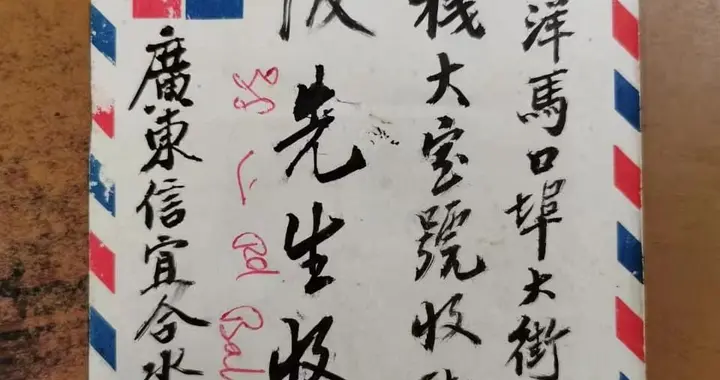 洋馬口埠大街
棧大宝號收
先生收
廣東信宜合水
Rd Bal